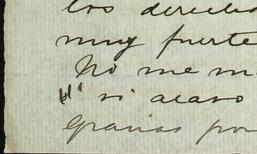 los derech
muy fuerte
No me m
si acaso
Gracias por